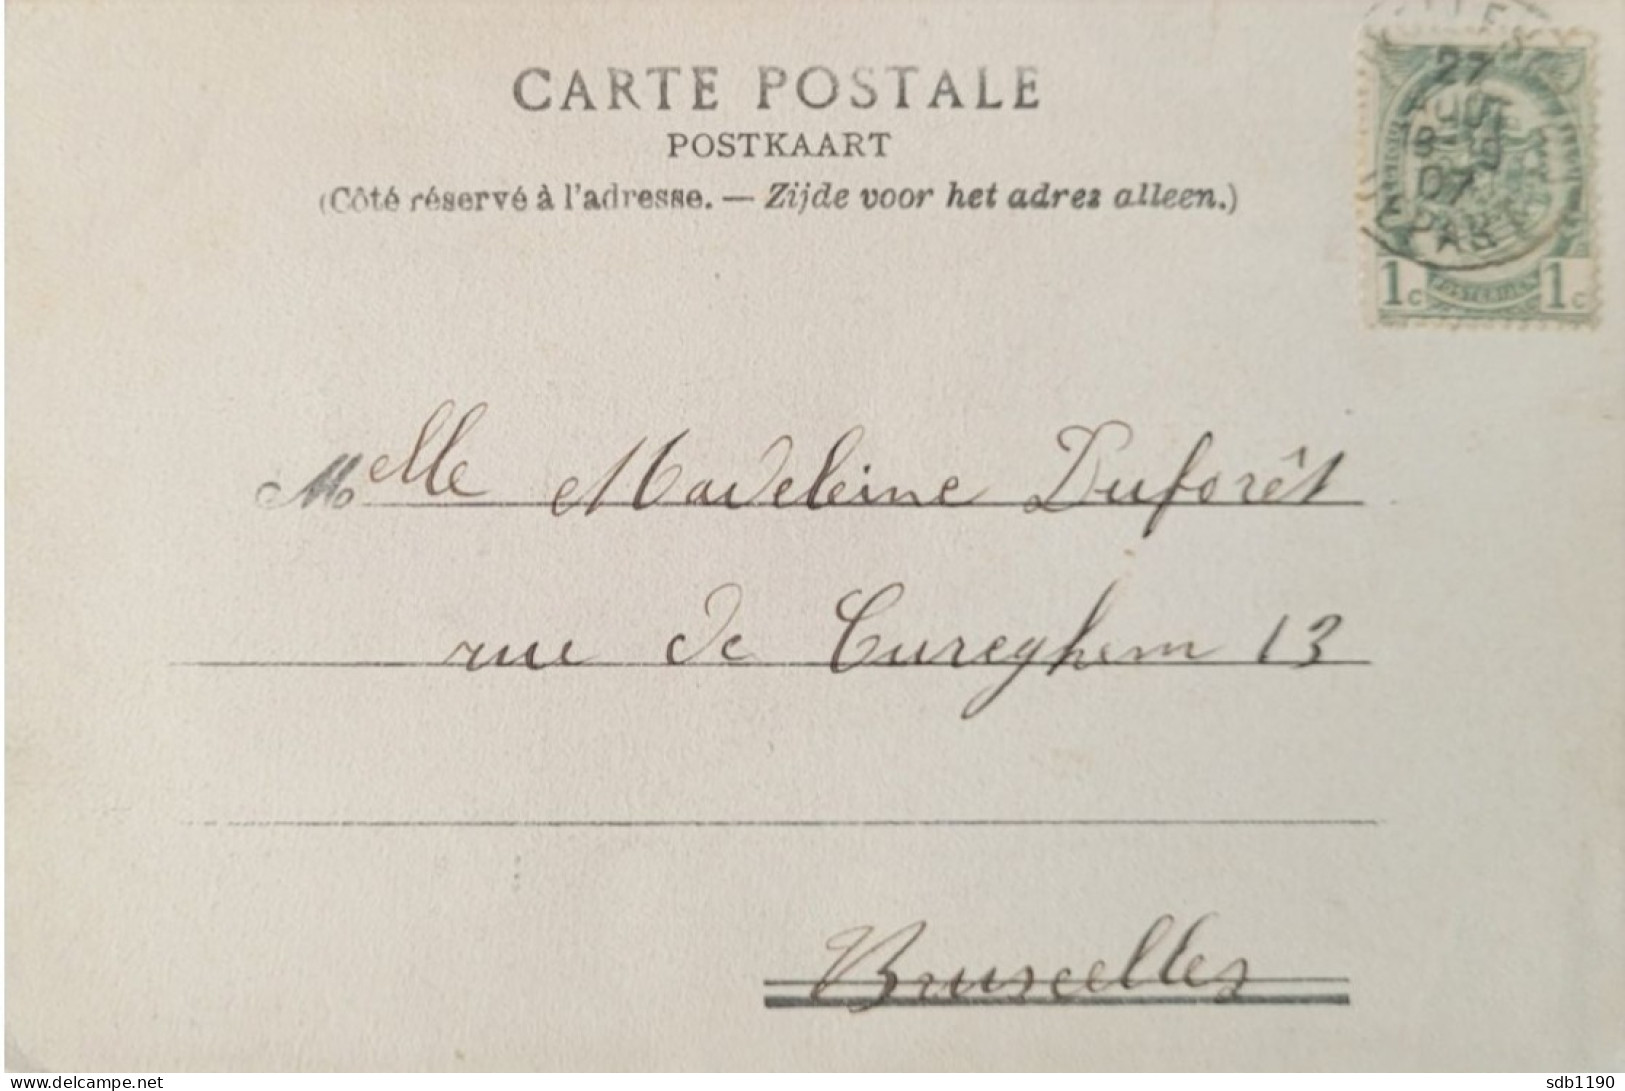 CARTE POSTALE
POSTKAART
(Côté réservé à l'adresse. — Zijde voor het adres alleen.)
27
AOUT
07
DEPART
1c 1c
Melle Madeleine Duforêt
rue de Cureghem 13
Bruxelles
www.delcampe.net
sdb1190